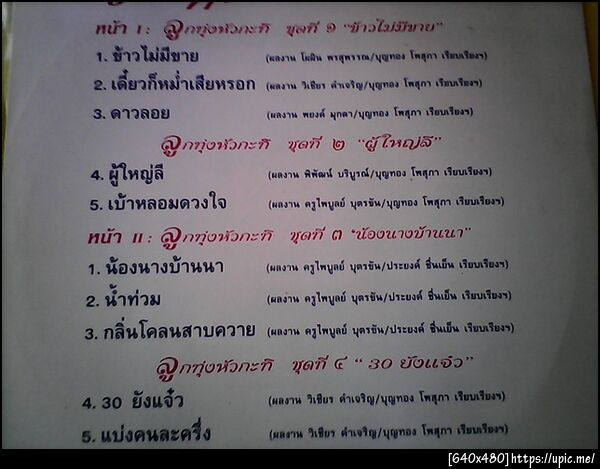 หน้า I : ลูกทุ่งหัวกะทิ ชุดที่ ๑ "ข้าวไม่มีขาย"
1. ข้าวไม่มีขาย (ผลงาน โผผิน พรสุพรรณ/บุญทอง โพสุภา เรียบเรียงฯ)
2. เดี๋ยวก็หม่ำเสียหรอก (ผลงาน วิเชียร คำเจริญ/บุญทอง โพสุภา เรียบเรียงฯ)
3. ดาวลอย (ผลงาน พยงค์ มุกดา/บุญทอง โพสุภา เรียบเรียงฯ)
ลูกทุ่งหัวกะทิ ชุดที่ ๒ "ผู้ใหญ่ลี"
4. ผู้ใหญ่ลี (ผลงาน พิพัฒน์ บริบูรณ์/บุญทอง โพสุภา เรียบเรียงฯ)
5. เบ้าหลอมดวงใจ (ผลงาน ครูไพบูลย์ บุตรขัน/บุญทอง โพสุภา เรียบเรียงฯ)
หน้า II : ลูกทุ่งหัวกะทิ ชุดที่ ๓ "น้องนางบ้านนา"
1. น้องนางบ้านนา (ผลงาน ครูไพบูลย์ บุตรขัน/ประยงค์ ชื่นเย็น เรียบเรียงฯ)
2. น้ำท่วม (ผลงาน ครูไพบูลย์ บุตรขัน/ประยงค์ ชื่นเย็น เรียบเรียงฯ)
3. กลิ่นโคลนสาบควาย (ผลงาน ครูไพบูลย์ บุตรขัน/ประยงค์ ชื่นเย็น เรียบเรียงฯ)
ลูกทุ่งหัวกะทิ ชุดที่ ๔ "30 ยังแจ๋ว"
4. 30 ยังแจ๋ว (ผลงาน วิเชียร คำเจริญ/บุญทอง โพสุภา เรียบเรียงฯ)
5. แบ่งคนละครึ่ง (ผลงาน วิเชียร คำเจริญ/บุญทอง โพสุภา เรียบเรียงฯ)
[640x480]https://upic.me/